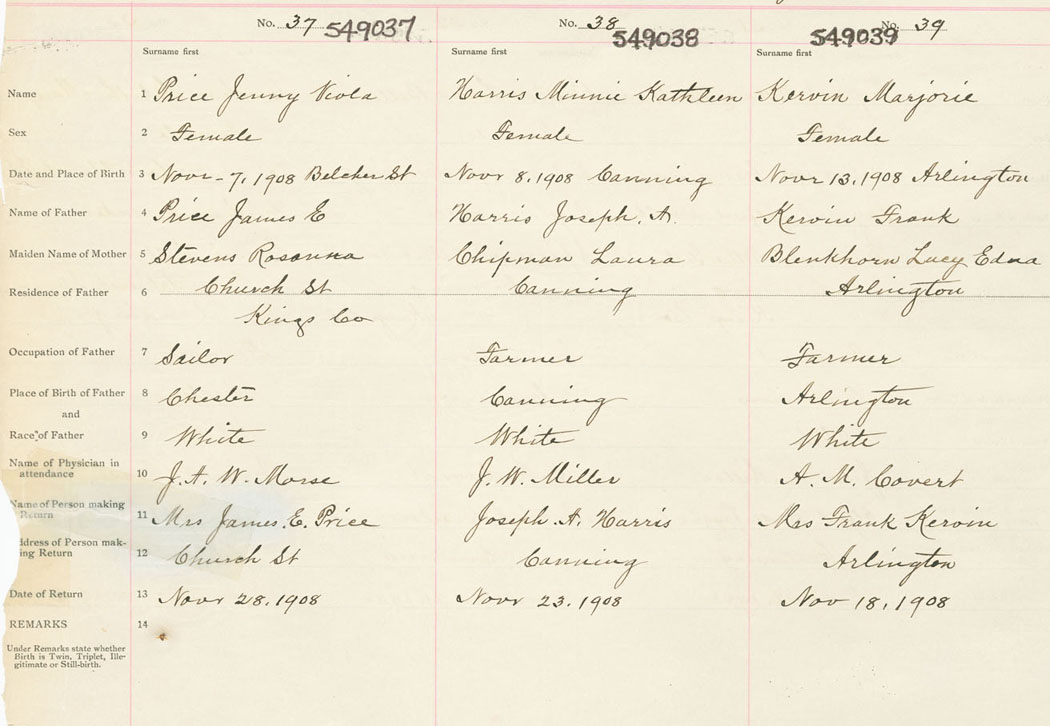 No. 37 549037 No. 38 549038 549039 No. 39
Surname first Surname first Surname first
Name 1 Price Jenny Viola Harris Minnie Kathleen Kervin Marjorie
Sex 2 Female Female Female
Date and Place of Birth 3 Novr - 7, 1908 Belcher St Novr 8, 1908 Canning Novr 13, 1908 Arlington
Name of Father 4 Price James E Harris Joseph. A. Kervin Frank
Maiden Name of Mother 5 Stevens Rosanna Chipman Laura Blenkhorn Lucy Edna
Residence of Father 6 Church St Canning Arlington
Kings Co
Occupation of Father 7 Sailor Farmer Farmer
Place of Birth of Father 8 Chester Canning Arlington
and
Race of Father 9 White White White
Name of Physician in
attendance 10 J. A. W. Morse J. W. Miller A. M. Covert
Name of Person making
Return 11 Mrs James. E. Price Joseph. A. Harris Mrs Frank Kervin
ddress of Person mak-
ing Return 12 Church St Canning Arlington
Date of Return 13 Novr 28, 1908 Novr 23. 1908 Nov 18, 1908
REMARKS 14
Under Remarks state whether
Birth is Twin, Triplet, Ille-
gitimate or Still-birth.